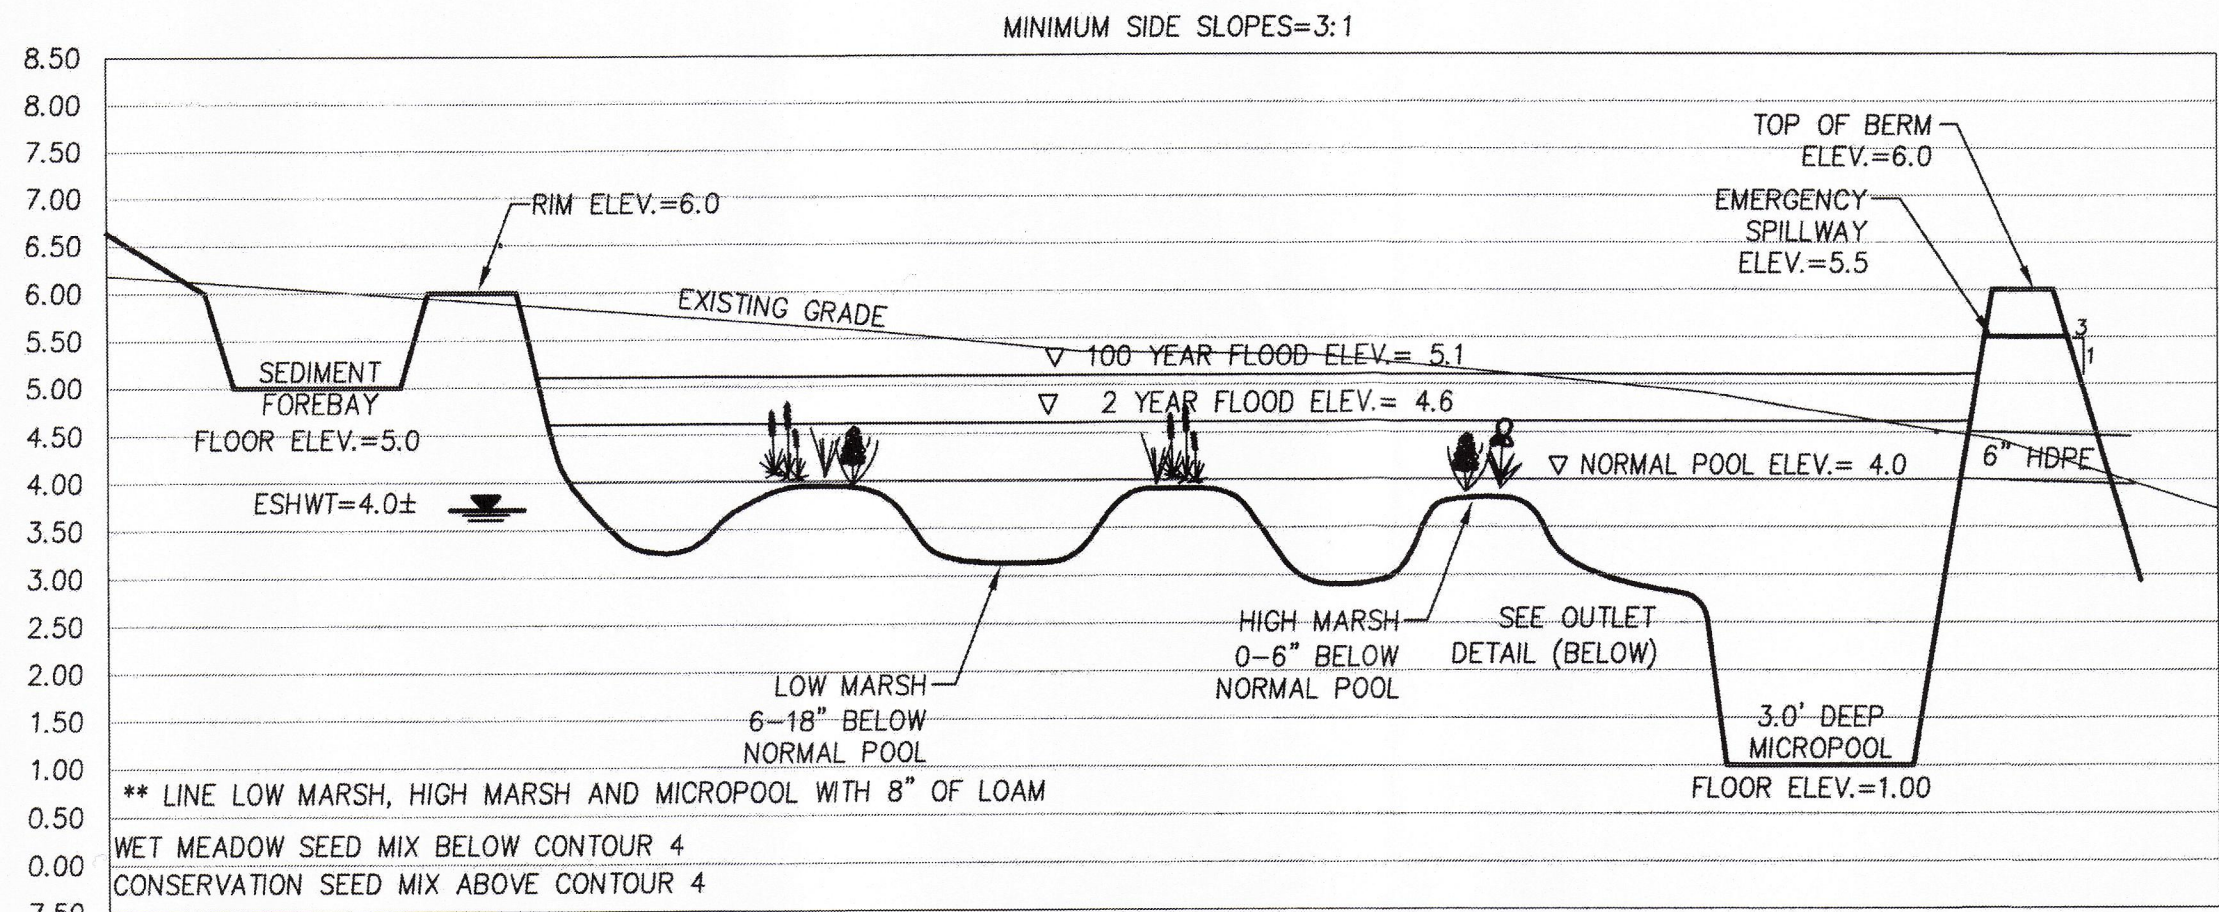 MINIMUM SIDE SLOPES=3:1
8.50
8.00
7.50
7.00
6.50
6.00
5.50
5.00
4.50
4.00
3.50
3.00
2.50
2.00
1.50
1.00
0.50
0.00
TOP OF BERM
ELEV.=6.0
RIM ELEV.=6.0
EMERGENCY
SPILLWAY
ELEV.=5.5
EXISTING GRADE
3
1
▽ 100 YEAR FLOOD ELEV.= 5.1
SEDIMENT
FOREBAY
FLOOR ELEV.=5.0
▽ 2 YEAR FLOOD ELEV.= 4.6
▽ NORMAL POOL ELEV.= 4.0
6" HDPE
ESHWT=4.0±
HIGH MARSH
0-6" BELOW
NORMAL POOL
SEE OUTLET
DETAIL (BELOW)
LOW MARSH
6-18" BELOW
NORMAL POOL
3.0' DEEP
MICROPOOL
FLOOR ELEV.=1.00
** LINE LOW MARSH, HIGH MARSH AND MICROPOOL WITH 8" OF LOAM
WET MEADOW SEED MIX BELOW CONTOUR 4
CONSERVATION SEED MIX ABOVE CONTOUR 4